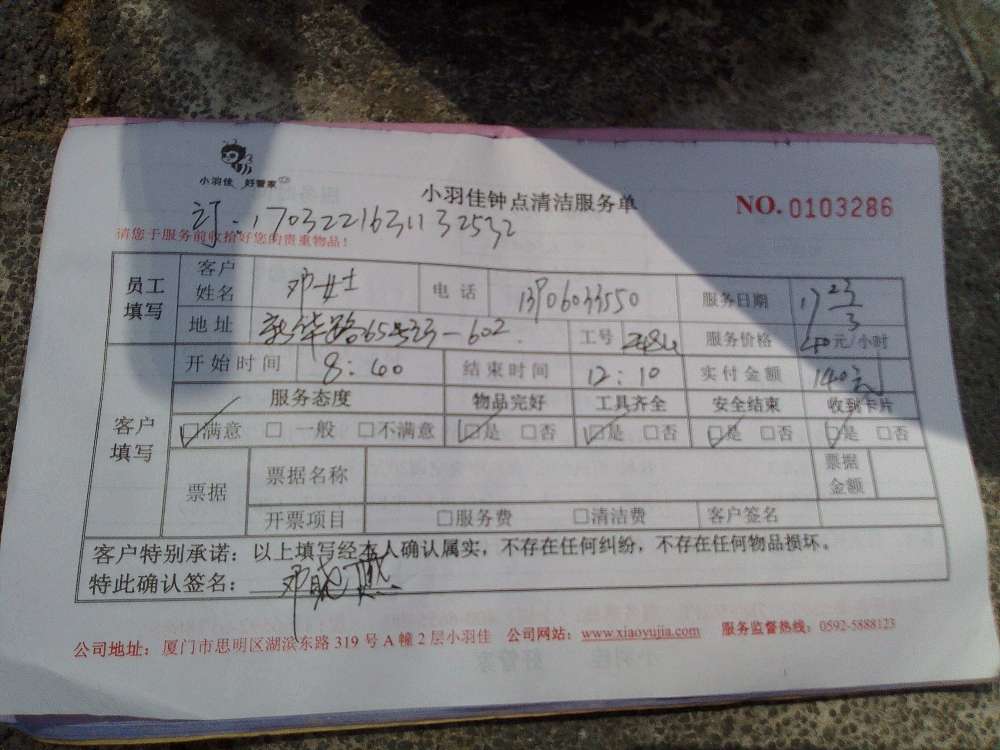 小羽佳 好管家
小羽佳钟点清洁服务单 NO. 0103286
订:1703221631132532
请您于服务前收拾好您的贵重物品!
员工填写 客户姓名 邓女士 电话 13906033550 服务日期 17 23/3
地址 新华路65号533-602 工号 2484 服务价格 40元/小时
开始时间 8:40 结束时间 12:10 实付金额 140元
客户填写 服务态度 物品完好 工具齐全 安全结束 收到卡片
☑满意 □一般 □不满意 ☑是 □否 ☑是 □否 ☑是 □否 ☑是 □否
票据 票据名称 票据金额
开票项目 □服务费 □清洁费 客户签名
客户特别承诺:以上填写经本人确认属实,不存在任何纠纷,不存在任何物品损坏。
特此确认签名:邓晓燕
公司地址:厦门市思明区湖滨东路 319 号 A 幢 2 层小羽佳 公司网站:www.xiaoyujia.com 服务监督热线:0592-5888123